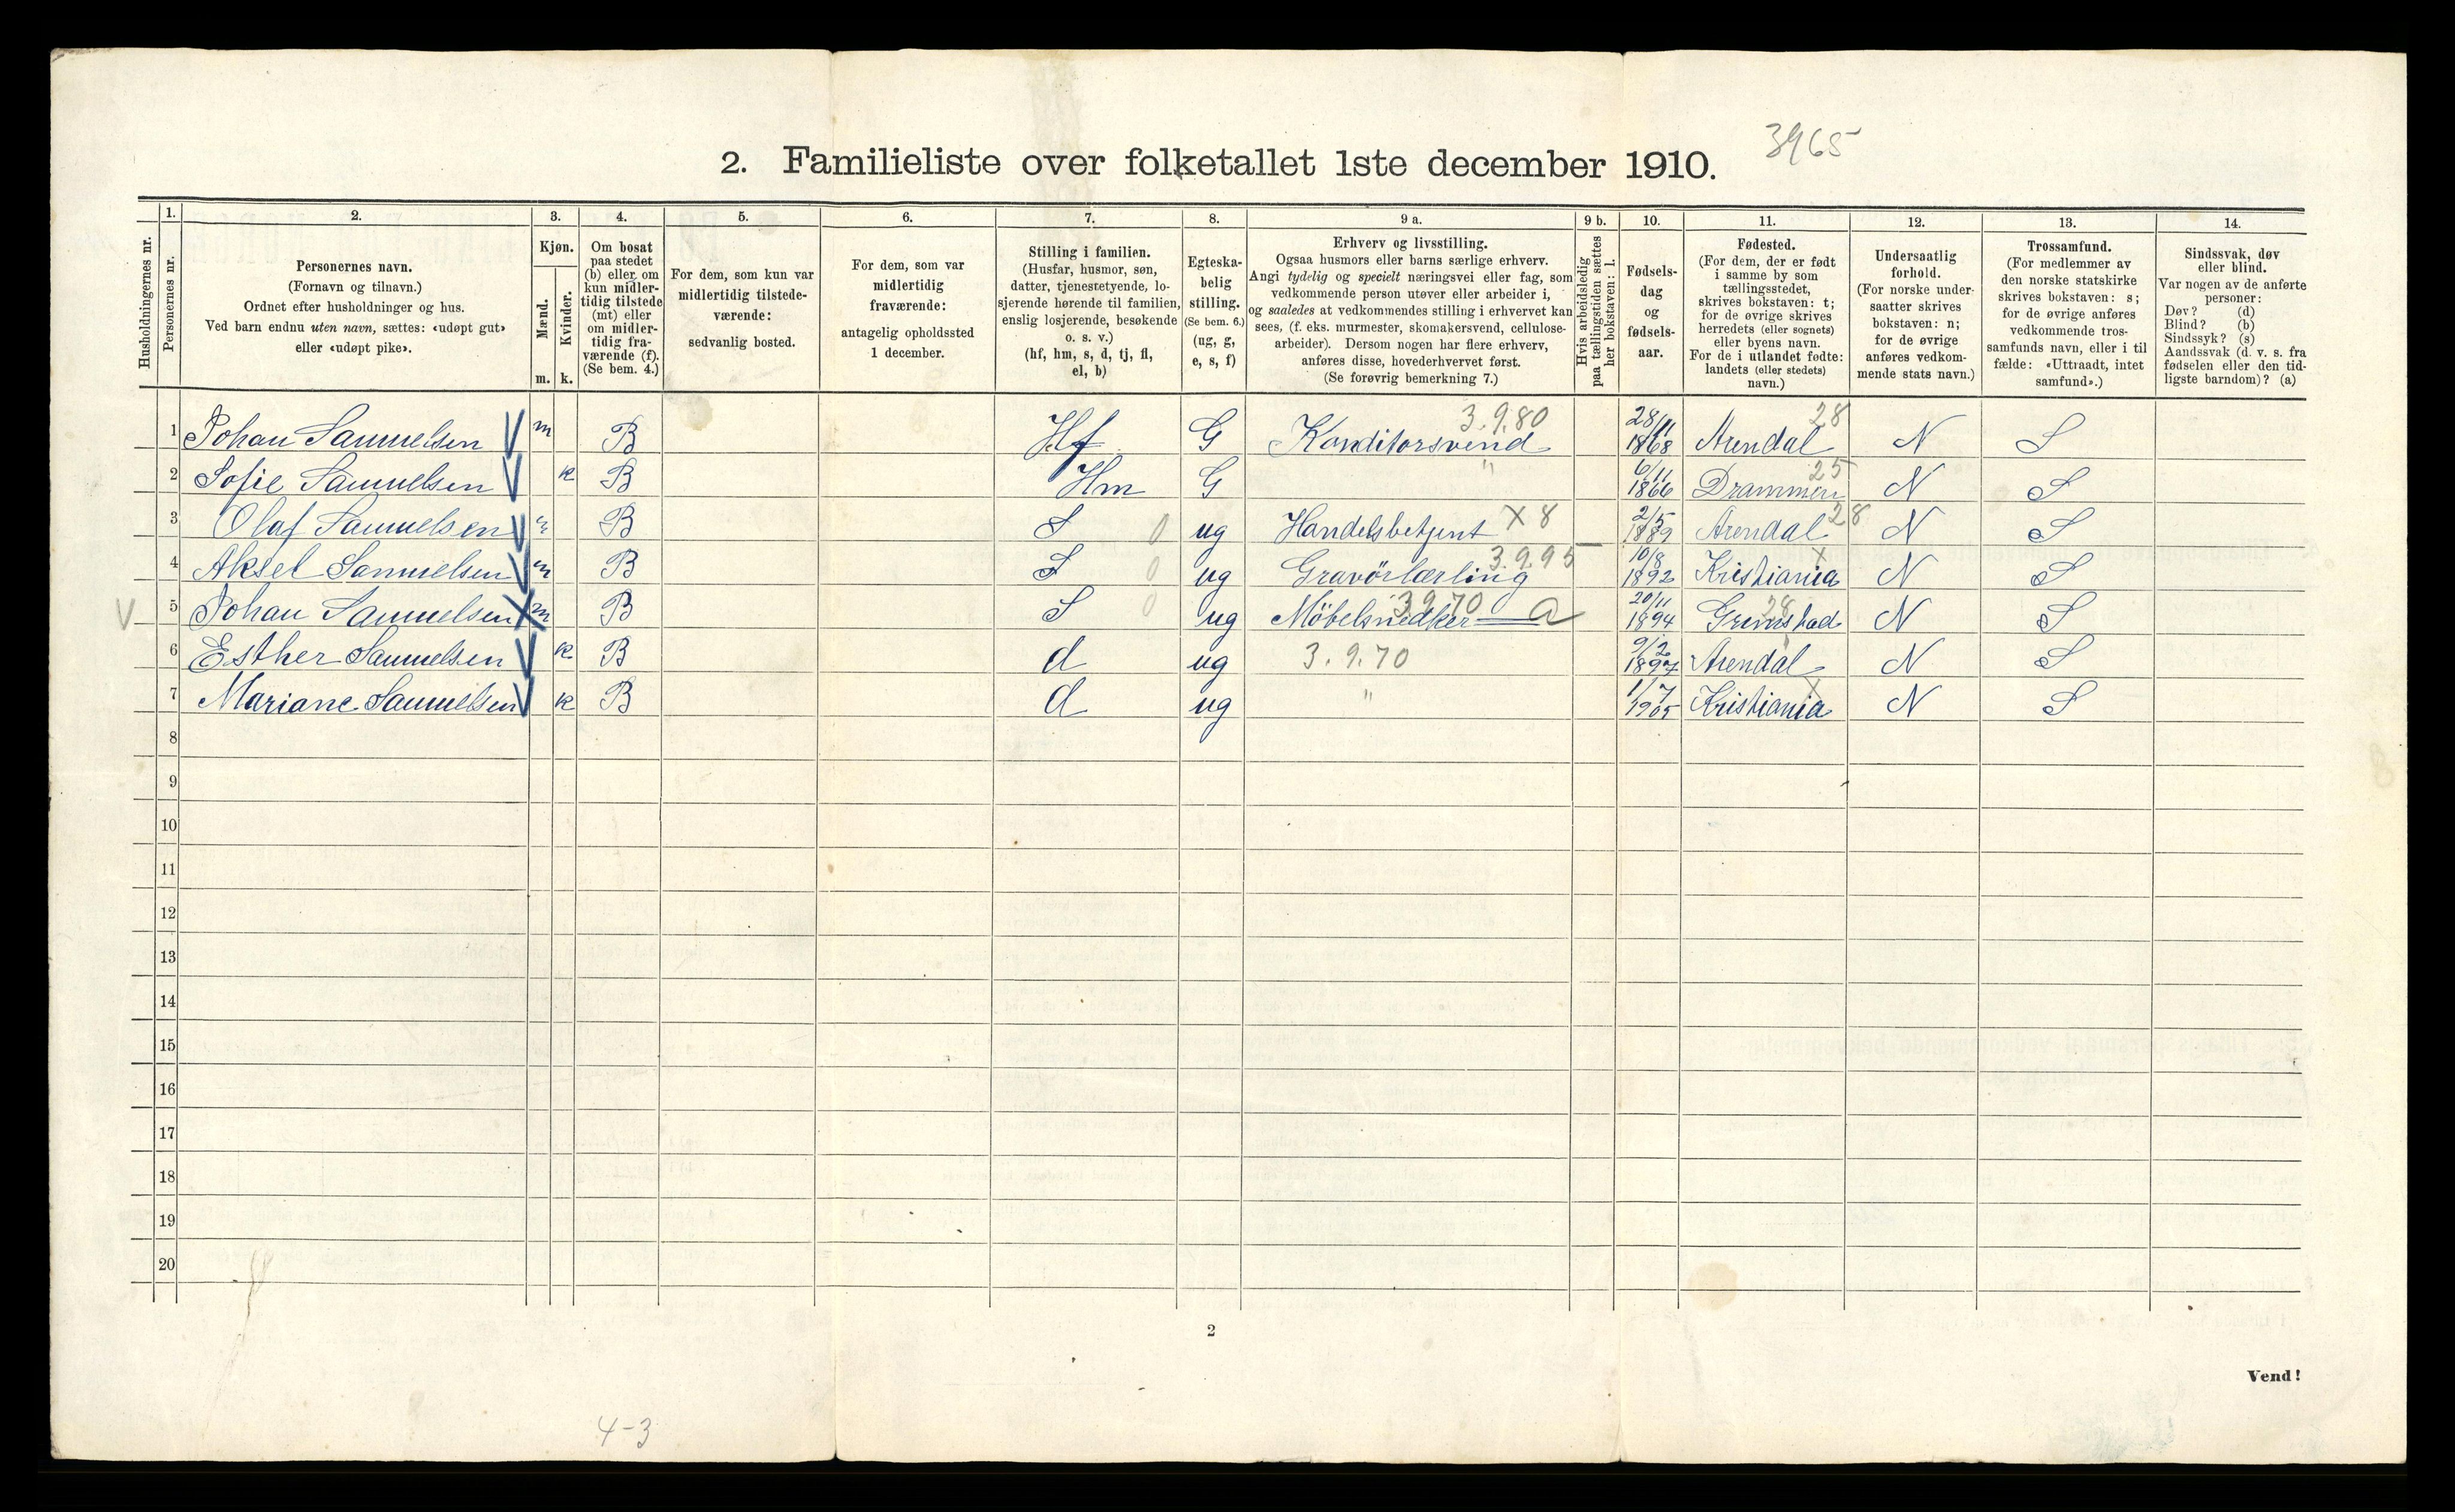 3965
2. Familieliste over folketallet 1ste december 1910.
Husholdningernes nr.
1. Personernes nr.
2. Personernes navn. (Fornavn og tilnavn.) Ordnet efter husholdninger og hus. Ved barn endnu uten navn, sættes: «udøpt gut» eller «udøpt pike».
3. Kjøn. Mænd. m. Kvinder. k.
4. Om bosat paa stedet (b) eller om kun midlertidig tilstede (mt) eller om midlertidig fraværende (f). (Se bem. 4.)
5. For dem, som kun var midlertidig tilstedeværende: sedvanlig bosted.
6. For dem, som var midlertidig fraværende: antagelig opholdssted 1 december.
7. Stilling i familien. (Husfar, husmor, søn, datter, tjenestetyende, losjerende hørende til familien, enslig losjerende, besøkende o. s. v.) (hf, hm, s, d, tj, fl, el, b)
8. Egteskabelig stilling. (Se bem. 6.) (ug, g, e, s, f)
9 a. Erhverv og livsstilling. Ogsaa husmors eller barns særlige erhverv. Angi tydelig og specielt næringsvei eller fag, som vedkommende person utøver eller arbeider i, og saaledes at vedkommendes stilling i erhvervet kan sees, (f. eks. murmester, skomakersvend, cellulosearbeider). Dersom nogen har flere erhverv, anføres disse, hovederhvervet først. (Se forøvrig bemerkning 7.)
9 b. Hvis arbeidsledig paa tællingstiden sættes her bokstaven: l.
10. Fødselsdag og fødselsaar.
11. Fødested. (For dem, der er født i samme by som tællingsstedet, skrives bokstaven: t; for de øvrige skrives herredets (eller sognets) eller byens navn. For de i utlandet fødte: landets (eller stedets) navn.)
12. Undersaatlig forhold. (For norske undersaatter skrives bokstaven: n; for de øvrige anføres vedkommende stats navn.)
13. Trossamfund. (For medlemmer av den norske statskirke skrives bokstaven: s; for de øvrige anføres vedkommende trossamfunds navn, eller i tilfælde: «Uttraadt, intet samfund».)
14. Sindssvak, døv eller blind. Var nogen av de anførte personer: Døv? (d) Blind? (b) Sindssyk? (s) Aandssvak (d. v. s. fra fødselen eller den tidligste barndom)? (a)
1 Johan Samuelsen V m B Hf G Konditorsvend 3.9.80 28/11 1868 Arendal 28 N S
2 Sofie Samuelsen V k B Hm G " 6/11 1866 Drammen 25 N S
3 Olaf Samuelsen V m B S 0 ug Handelsbetjent X 8 2/5 1889 Arendal 28 N S
4 Aksel Samuelsen V m B S 0 ug Gravörlærling 3.9.95 10/8 1892 Kristiania X N S
V 5 Johan Samuelsen X m B S 0 ug Möbelsnedker 3.9.70 a 20/11 1894 Grimstad 28 N S
6 Esther Samuelsen V k B d ug 3.9.70 9/2 1897 Arendal N S
7 Mariane Samuelsen V k B d ug " 1/7 1905 Kristiania X N S
8
9
10
11
12
13
14
15
16
17
18
19
20
2
Vend!
4-3